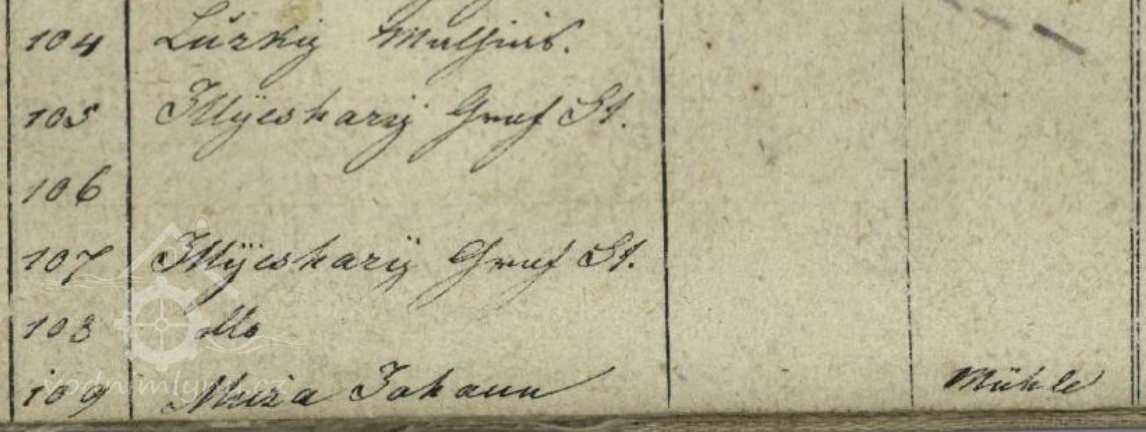 104 Lúzkij Mathias.
105 Illÿesharÿ Graf St.
106
107 Illÿesharÿ Graf St.
108 dto
109 Johann Mühle
vodnimlyny.cz